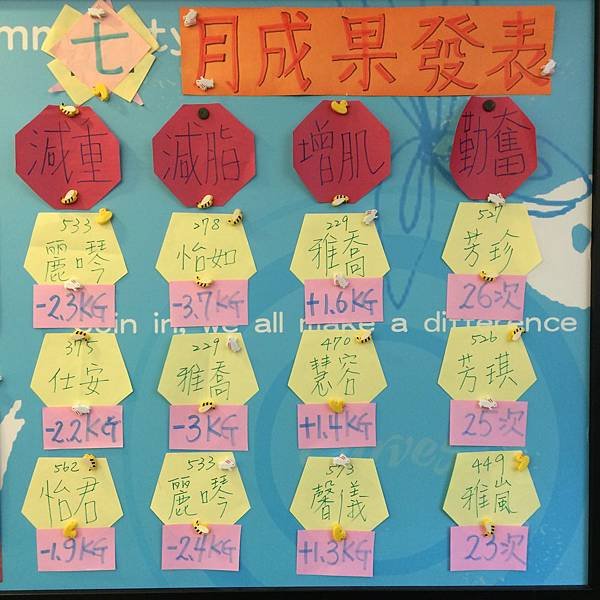 mmunity
七月成果發表
減重 減脂 增肌 勤奮
533 278 229 527
麗琴 怡如 雅喬 芳珍
-2.3KG -3.7KG +1.6KG 26次
Join in, we all make a difference
375 229 470 526
仕安 雅喬 慧容 芳琪
-2.2KG -3KG +1.4KG 25次
Curves
562 533 573 449
怡君 麗琴 馨儀 雅嵐
-1.9KG -2.4KG +1.3KG 23次